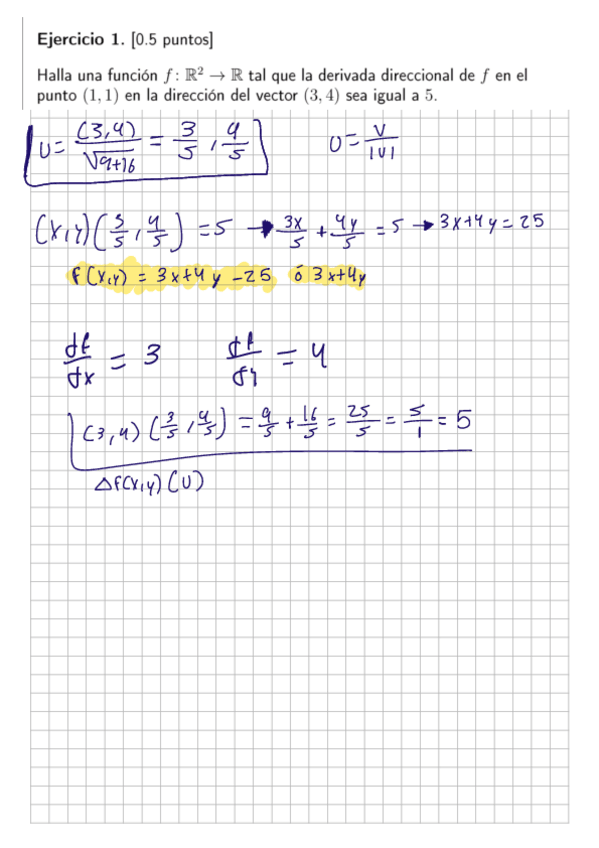 Ejercicio 1. [0.5 puntos]
Halla una función f: ℝ² → ℝ tal que la derivada direccional de f en el
punto (1, 1) en la dirección del vector (3, 4) sea igual a 5.
U = (3,4)/√(9+16) = 3/5 , 4/5 U = V/|U|
(x,y)(3/5, 4/5) = 5 → 3x/5 + 4y/5 = 5 → 3x+4y = 25
f(x,y) = 3x+4y -25 ó 3x+4y
df/dx = 3 df/dy = 4
(3,4)(3/5, 4/5) = 9/5 + 16/5 = 25/5 = 5/1 = 5
△f(x,y)(U)